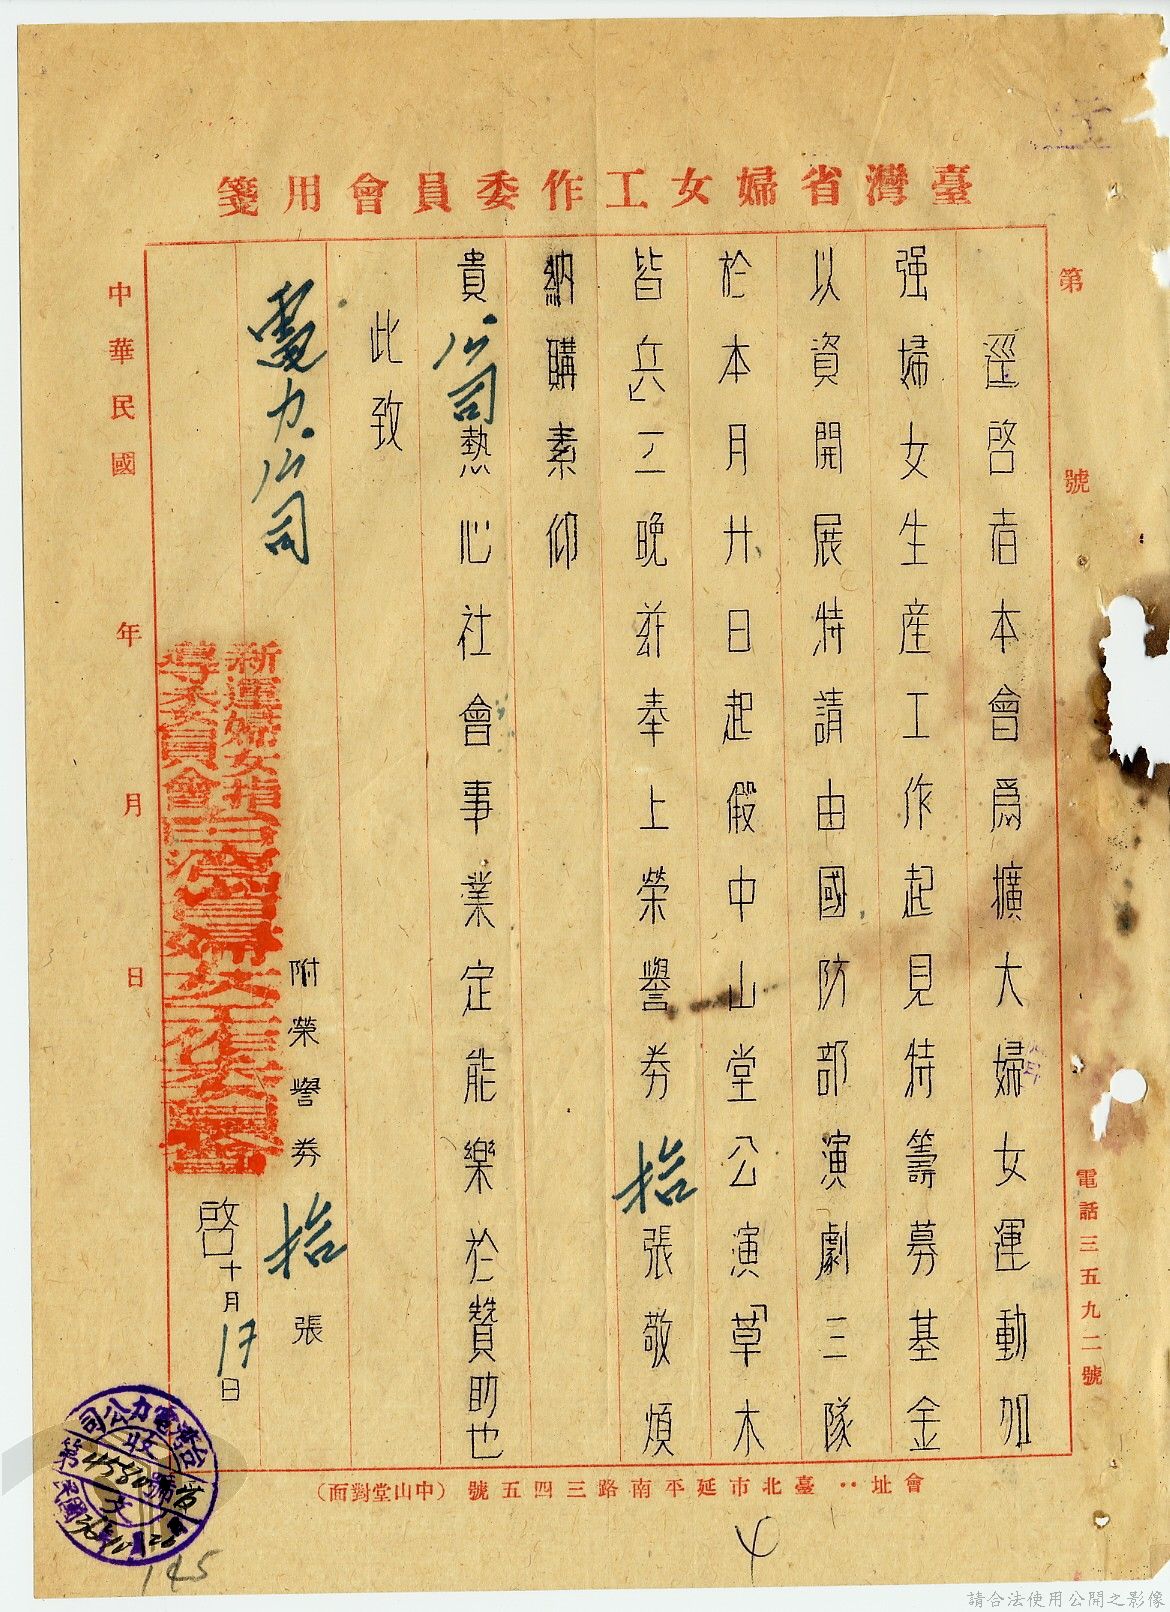 臺灣省婦女工作委員會用箋
第　號
電話三五九二號
逕啓者本會爲擴大婦女運動加
强婦女生産工作起見特籌募基金
以資開展特請由國防部演劇三隊
於本月廿日起假中山堂公演「草木
皆兵」三晚玆奉上榮譽券拾張敬煩
納購素仰
貴公司熱心社會事業定能樂於贊助也
此致
電力公司
附榮譽券拾張
新運婦女指導委員會台灣省婦女工作委員會
啓十月17日
中華民國　年　月　日
會址：臺北市延平南路三四五號（中山堂對面）
台灣電力公司
收
第4580號
文
民國36年10月20日
145
請合法使用公開之影像